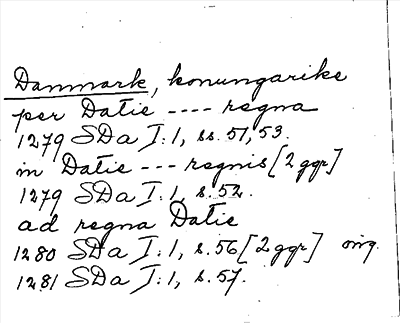 Danmark, konungarike
per Datie ---- regna
1279 SDa I:1, ss. 51, 53.
in Datie --- regnis [2 ggr]
1279 SDa I:1, s. 52.
ad regna Datie
1280 SDa I:1, s. 56 [2 ggr] orig.
1281 SDa I:1, s. 57.